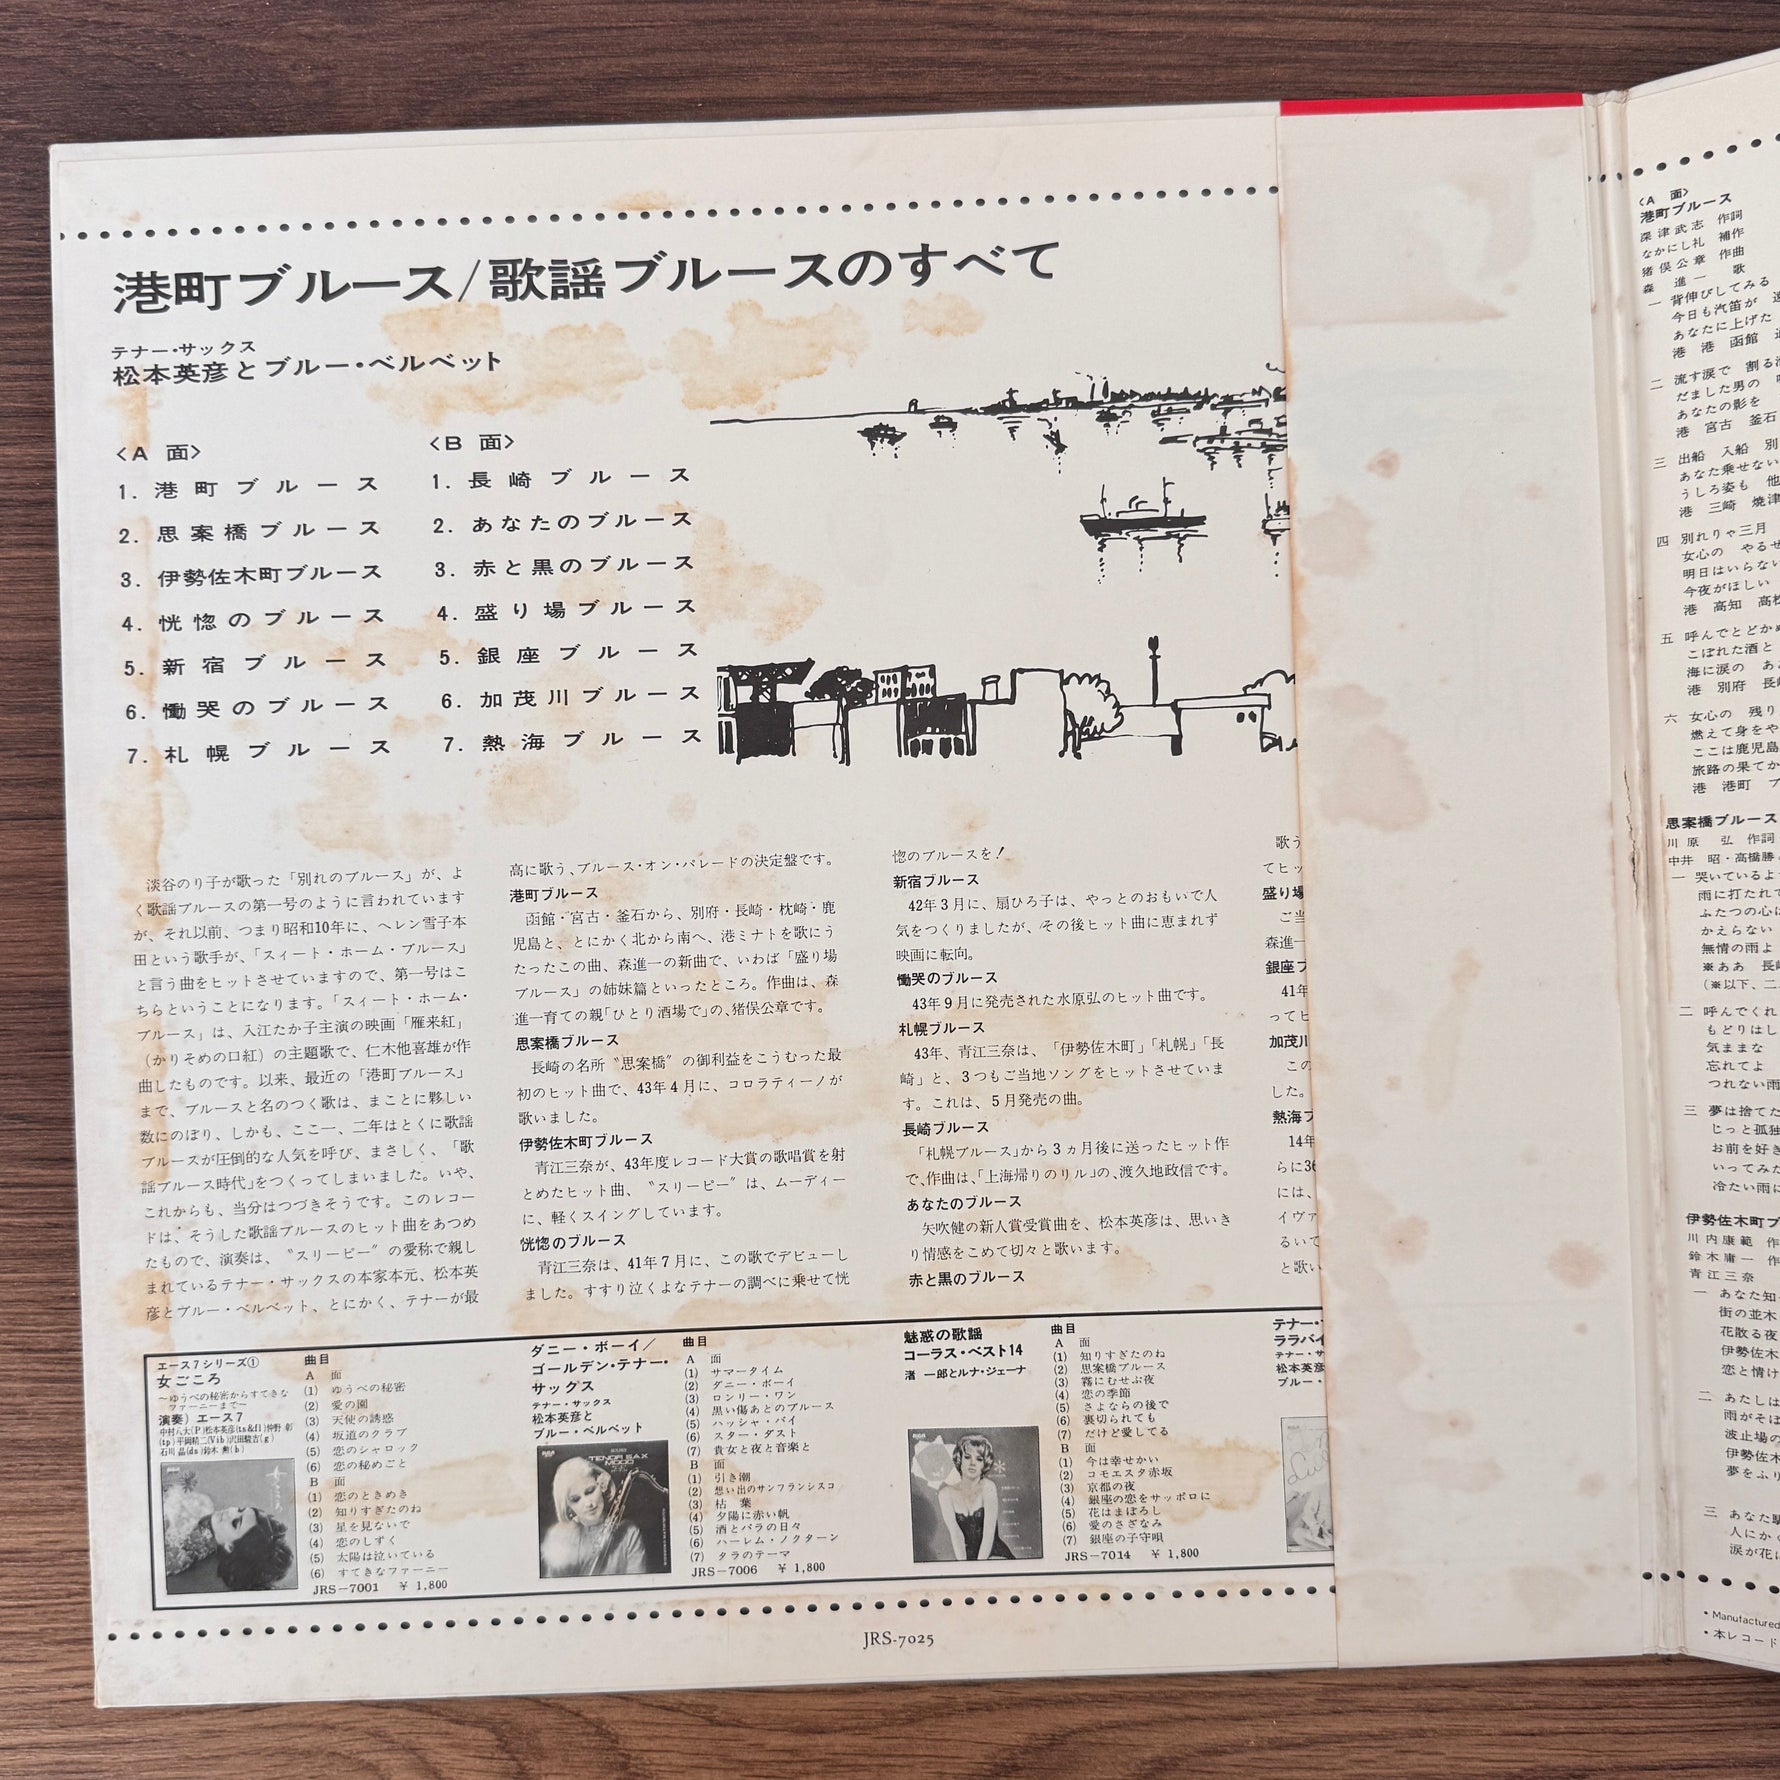 港町ブルース/歌謡ブルースのすべて
テナー・サックス
松本英彦とブルー・ベルベット
<A 面>
1. 港町ブルース
2. 思案橋ブルース
3. 伊勢佐木町ブルース
4. 恍惚のブルース
5. 新宿ブルース
6. 慟哭のブルース
7. 札幌ブルース
<B 面>
1. 長崎ブルース
2. あなたのブルース
3. 赤と黒のブルース
4. 盛り場ブルース
5. 銀座ブルース
6. 加茂川ブルース
7. 熱海ブルース
淡谷のり子が歌った「別れのブルース」が、よ
く歌謡ブルースの第一号のように言われています
が、それ以前、つまり昭和10年に、ヘレン雪子本
田という歌手が、「スィート・ホーム・ブルース」
と言う曲をヒットさせていますので、第一号はこ
ちらということになります。「スィート・ホーム・
ブルース」は、入江たか子主演の映画「雁来紅」
(かりそめの口紅)の主題歌で、仁木他喜雄が作
曲したものです。以来、最近の「港町ブルース」
まで、ブルースと名のつく歌は、まことに夥しい
数にのぼり、しかも、ここ一、二年はとくに歌謡
ブルースが圧倒的な人気を呼び、まさしく、「歌
謡ブルース時代」をつくってしまいました。いや、
これからも、当分はつづきそうです。このレコー
ドは、そうした歌謡ブルースのヒット曲をあつめ
たもので、演奏は、〝スリーピー〟の愛称で親し
まれているテナー・サックスの本家本元、松本英
彦とブルー・ベルベット、とにかく、テナーが最
高に歌う、ブルース・オン・パレードの決定盤です。
港町ブルース
函館・宮古・釜石から、別府・長崎・枕崎・鹿
児島と、とにかく北から南へ、港ミナトを歌にう
たったこの曲、森進一の新曲で、いわば「盛り場
ブルース」の姉妹篇といったところ。作曲は、森
進一育ての親「ひとり酒場で」の、猪俣公章です。
思案橋ブルース
長崎の名所〝思案橋〟の御利益をこうむった最
初のヒット曲で、43年4月に、コロラティーノが
歌いました。
伊勢佐木町ブルース
青江三奈が、43年度レコード大賞の歌唱賞を射
とめたヒット曲、〝スリーピー〟は、ムーディー
に、軽くスイングしています。
恍惚のブルース
青江三奈は、41年7月に、この歌でデビューし
ました。すすり泣くよなテナーの調べに乗せて恍
惚のブルースを!
新宿ブルース
42年3月に、扇ひろ子は、やっとのおもいで人
気をつくりましたが、その後ヒット曲に恵まれず
映画に転向。
慟哭のブルース
43年9月に発売された水原弘のヒット曲です。
札幌ブルース
43年、青江三奈は、「伊勢佐木町」「札幌」「長
崎」と、3つもご当地ソングをヒットさせていま
す。これは、5月発売の曲。
長崎ブルース
「札幌ブルース」から3ヵ月後に送ったヒット作
で、作曲は、「上海帰りのリル」の、渡久地政信です。
あなたのブルース
矢吹健の新人賞受賞曲を、松本英彦は、思いき
り情感をこめて切々と歌います。
赤と黒のブルース
歌う
てヒッ
盛り場
ご当
森進一
銀座ブ
41年
ってヒ
加茂川
この
した。
熱海ブ
14年
らに36
には、
イヴァ
るいて
と歌い
エース7シリーズ①
女ごころ
〜ゆうべの秘密からすてきな
ファーニーまで〜
演奏)エース7
中村八大(P)松本英彦(ts&fl)仲野 彰
(tp)平岡精二(Vib)沢田駿吾(g)
石川 晶(ds)鈴木 勲(b)
曲目
A 面
(1) ゆうべの秘密
(2) 愛の園
(3) 天使の誘惑
(4) 坂道のクラブ
(5) 恋のシャロック
(6) 恋の秘めごと
B 面
(1) 恋のときめき
(2) 知りすぎたのね
(3) 星を見ないで
(4) 恋のしずく
(5) 太陽は泣いている
(6) すてきなファーニー
JRS-7001 ¥ 1,800
ダニー・ボーイ/
ゴールデン・テナー・
サックス
テナー・サックス
松本英彦と
ブルー・ベルベット
TENOR SAX
曲目
A 面
(1) サマータイム
(2) ダニー・ボーイ
(3) ロンリー・ワン
(4) 黒い傷あとのブルース
(5) ハッシャ・バイ
(6) スター・ダスト
(7) 貴女と夜と音楽と
B 面
(1) 引き潮
(2) 想い出のサンフランシスコ
(3) 枯 葉
(4) 夕陽に赤い帆
(5) 酒とバラの日々
(6) ハーレム・ノクターン
(7) タラのテーマ
JRS-7006 ¥ 1,800
魅惑の歌謡
コーラス・ベスト14
渚 一郎とルナ・ジェーナ
曲目
A 面
(1) 知りすぎたのね
(2) 思案橋ブルース
(3) 霧にむせぶ夜
(4) 恋の季節
(5) さよならの後で
(6) 裏切られても
(7) だけど愛してる
B 面
(1) 今は幸せかい
(2) コモエスタ赤坂
(3) 京都の夜
(4) 銀座の恋をサッポロに
(5) 花はまぼろし
(6) 愛のさざなみ
(7) 銀座の子守唄
JRS-7014 ¥ 1,800
テナー・
ララバイ
テナー・サ
松本英彦
ブルー・
JRS-7025
<A 面>
港町ブルース
深津武志 作詞
なかにし礼 補作
猪俣公章 作曲
森 進一 歌
一 背伸びしてみる
今日も汽笛が
あなたに上げた
港 港 函館
二 流す涙で 割る
だました男の
あなたの影を
港 宮古 釜石
三 出船 入船 別
あなた乗せない
うしろ姿も 他
港 三崎 焼津
四 別れりゃ三月
女心の やるせ
明日はいらない
今夜がほしい
港 高知 高松
五 呼んでとどかぬ
こぼれた酒と
海に涙の あ
港 別府 長崎
六 女心の 残り
燃えて身をや
ここは鹿児島
旅路の果てか
港 港町 ブ
思案橋ブルース
川原 弘 作詞
中井 昭・高橋勝
一 哭いているよ
雨に打たれて
ふたつの心に
かえらない
無情の雨よ
※ああ 長崎
(※以下、二、
二 呼んでくれ
もどりはし
気ままな
忘れてよ
つれない雨
三 夢は捨てた
じっと孤独
お前を好き
いってみた
冷たい雨に
伊勢佐木町ブ
川内康範 作
鈴木庸一 作
青江三奈
一 あなた知
街の並木
花散る夜
伊勢佐木
恋と情け
二 あたしは
雨がそぼ
波止場の
伊勢佐木
夢をふり
三 あなた
人にか
涙が花
• Manufactured
• 本レコード